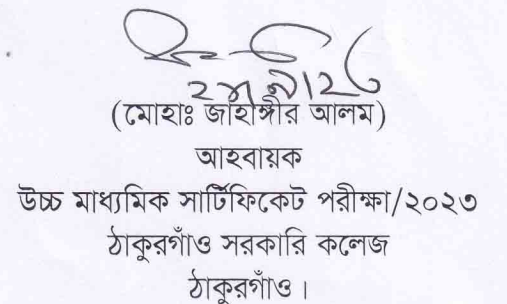 (মোহাঃ জাহাঙ্গীর আলম)
আহবায়ক
উচ্চ মাধ্যমিক সার্টিফিকেট পরীক্ষা/২০২৩
ঠাকুরগাঁও সরকারি কলেজ
ঠাকুরগাঁও।